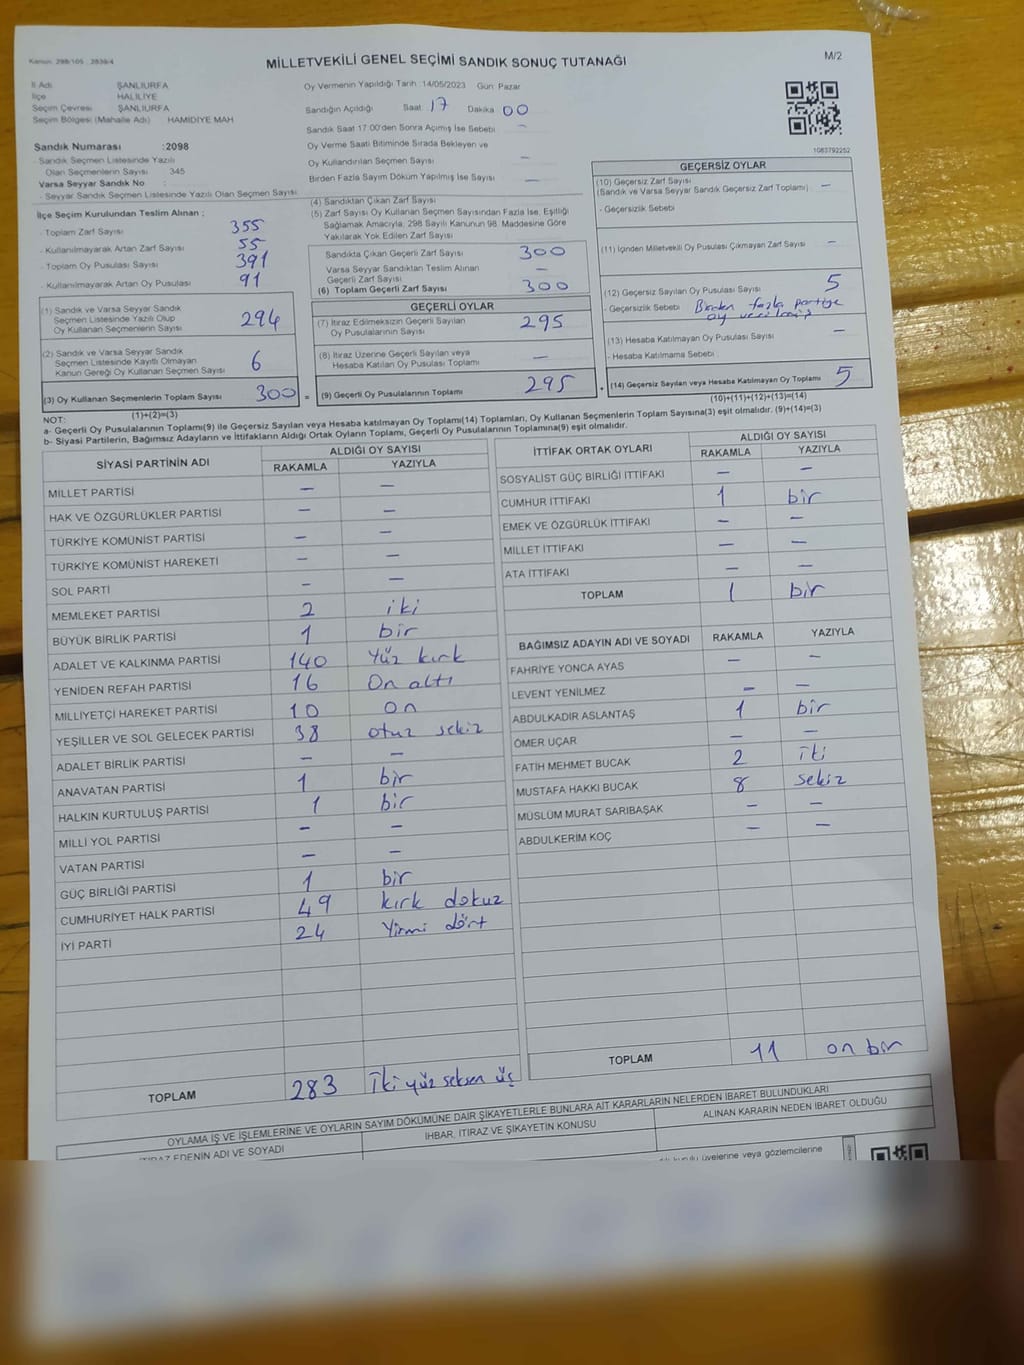 Kanun: 298/105 , 2839/4
MİLLETVEKİLİ GENEL SEÇİMİ SANDIK SONUÇ TUTANAĞI
M/2
İl Adı ŞANLIURFA
İlçe HALİLİYE
Seçim Çevresi ŞANLIURFA
Seçim Bölgesi (Mahalle Adı) HAMİDİYE MAH
Sandık Numarası :2098
- Sandık Seçmen Listesinde Yazılı
Olan Seçmenlerin Sayısı 345
Varsa Seyyar Sandık No :
- Seyyar Sandık Seçmen Listesinde Yazılı Olan Seçmen Sayısı
Oy Vermenin Yapıldığı Tarih : 14/05/2023 Gün: Pazar
Sandığın Açıldığı Saat 17 Dakika 00
Sandık Saat 17:00'den Sonra Açımış İse Sebebi –
Oy Verme Saati Bitiminde Sırada Bekleyen ve
Oy Kullandırılan Seçmen Sayısı –
Birden Fazla Sayım Döküm Yapılmış İse Sayısı –
1083792252
İlçe Seçim Kurulundan Teslim Alınan ;
- Toplam Zarf Sayısı 355
- Kullanılmayarak Artan Zarf Sayısı 55
- Toplam Oy Pusulası Sayısı 391
- Kullanılmayarak Artan Oy Pusulası 91
(1) Sandık ve Varsa Seyyar Sandık
Seçmen Listesinde Yazılı Olup
Oy Kullanan Seçmenlerin Sayısı 294
(2) Sandık ve Varsa Seyyar Sandık
Seçmen Listesinde Kayıtlı Olmayan
Kanun Gereği Oy Kullanan Seçmen Sayısı 6
(3) Oy Kullanan Seçmenlerin Toplam Sayısı 300 =
(1)+(2)=(3)
(4) Sandıktan Çıkan Zarf Sayısı
(5) Zarf Sayısı Oy Kullanan Seçmen Sayısından Fazla İse, Eşitliği
Sağlamak Amacıyla; 298 Sayılı Kanunun 98. Maddesine Göre
Yakılarak Yok Edilen Zarf Sayısı
Sandıkta Çıkan Geçerli Zarf Sayısı 300
Varsa Seyyar Sandıktan Teslim Alınan
Geçerli Zarf Sayısı –
(6) Toplam Geçerli Zarf Sayısı 300
GEÇERLİ OYLAR
(7) İtiraz Edilmeksizin Geçerli Sayılan
Oy Pusulalarının Sayısı 295
(8) İtiraz Üzerine Geçerli Sayılan veya
Hesaba Katılan Oy Pusulası Toplamı –
(9) Geçerli Oy Pusulalarının Toplamı 295 +
GEÇERSİZ OYLAR
(10) Geçersiz Zarf Sayısı
(Sandık ve Varsa Seyyar Sandık Geçersiz Zarf Toplamı) –
- Geçersizlik Sebebi
(11) İçinden Milletvekili Oy Pusulası Çıkmayan Zarf Sayısı –
(12) Geçersiz Sayılan Oy Pusulası Sayısı 5
- Geçersizlik Sebebi Birden fazla partiye
oy verilmiş
(13) Hesaba Katılmayan Oy Pusulası Sayısı –
- Hesaba Katılmama Sebebi
(14) Geçersiz Sayılan veya Hesaba Katılmayan Oy Toplamı 5
(10)+(11)+(12)+(13)=(14)
NOT:
a- Geçerli Oy Pusulalarının Toplamı(9) ile Geçersiz Sayılan veya Hesaba katılmayan Oy Toplamı(14) Toplamları, Oy Kullanan Seçmenlerin Toplam Sayısına(3) eşit olmalıdır. (9)+(14)=(3)
b- Siyasi Partilerin, Bağımsız Adayların ve İttifakların Aldığı Ortak Oyların Toplamı, Geçerli Oy Pusulalarının Toplamına(9) eşit olmalıdır.
SİYASİ PARTİNİN ADI ALDIĞI OY SAYISI
RAKAMLA YAZIYLA
MİLLET PARTİSİ – –
HAK VE ÖZGÜRLÜKLER PARTİSİ – –
TÜRKİYE KOMÜNİST PARTİSİ – –
TÜRKİYE KOMÜNİST HAREKETİ – –
SOL PARTİ – –
MEMLEKET PARTİSİ 2 iki
BÜYÜK BİRLİK PARTİSİ 1 bir
ADALET VE KALKINMA PARTİSİ 140 yüz kırk
YENİDEN REFAH PARTİSİ 16 On altı
MİLLİYETÇİ HAREKET PARTİSİ 10 on
YEŞİLLER VE SOL GELECEK PARTİSİ 38 otuz sekiz
ADALET BİRLİK PARTİSİ – –
ANAVATAN PARTİSİ 1 bir
HALKIN KURTULUŞ PARTİSİ 1 bir
MİLLİ YOL PARTİSİ – –
VATAN PARTİSİ – –
GÜÇ BİRLİĞİ PARTİSİ 1 bir
CUMHURİYET HALK PARTİSİ 49 kırk dokuz
İYİ PARTİ 24 Yirmi dört
TOPLAM 283 İki yüz seksen üç
İTTİFAK ORTAK OYLARI ALDIĞI OY SAYISI
RAKAMLA YAZIYLA
SOSYALİST GÜÇ BİRLİĞİ İTTİFAKI – –
CUMHUR İTTİFAKI 1 bir
EMEK VE ÖZGÜRLÜK İTTİFAKI – –
MİLLET İTTİFAKI – –
ATA İTTİFAKI – –
TOPLAM 1 bir
BAĞIMSIZ ADAYIN ADI VE SOYADI RAKAMLA YAZIYLA
FAHRİYE YONCA AYAS – –
LEVENT YENİLMEZ – –
ABDULKADİR ASLANTAŞ 1 bir
ÖMER UÇAR – –
FATİH MEHMET BUCAK 2 iki
MUSTAFA HAKKI BUCAK 8 sekiz
MÜSLÜM MURAT SARIBAŞAK – –
ABDULKERİM KOÇ – –
TOPLAM 11 on bir
OYLAMA İŞ VE İŞLEMLERİNE VE OYLARIN SAYIM DÖKÜMÜNE DAİR ŞİKAYETLERLE BUNLARA AİT KARARLARIN NELERDEN İBARET BULUNDUKLARI
EDENİN ADI VE SOYADI İHBAR, İTİRAZ VE ŞİKAYETİN KONUSU ALINAN KARARIN NEDEN İBARET OLDUĞU
üyelerine veya gözlemcilerine